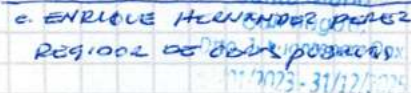 C. ENRIQUE HERNANDEZ PEREZ
REGIDOR DE OBRAS PUBLICAS
/2023-31/12/2025